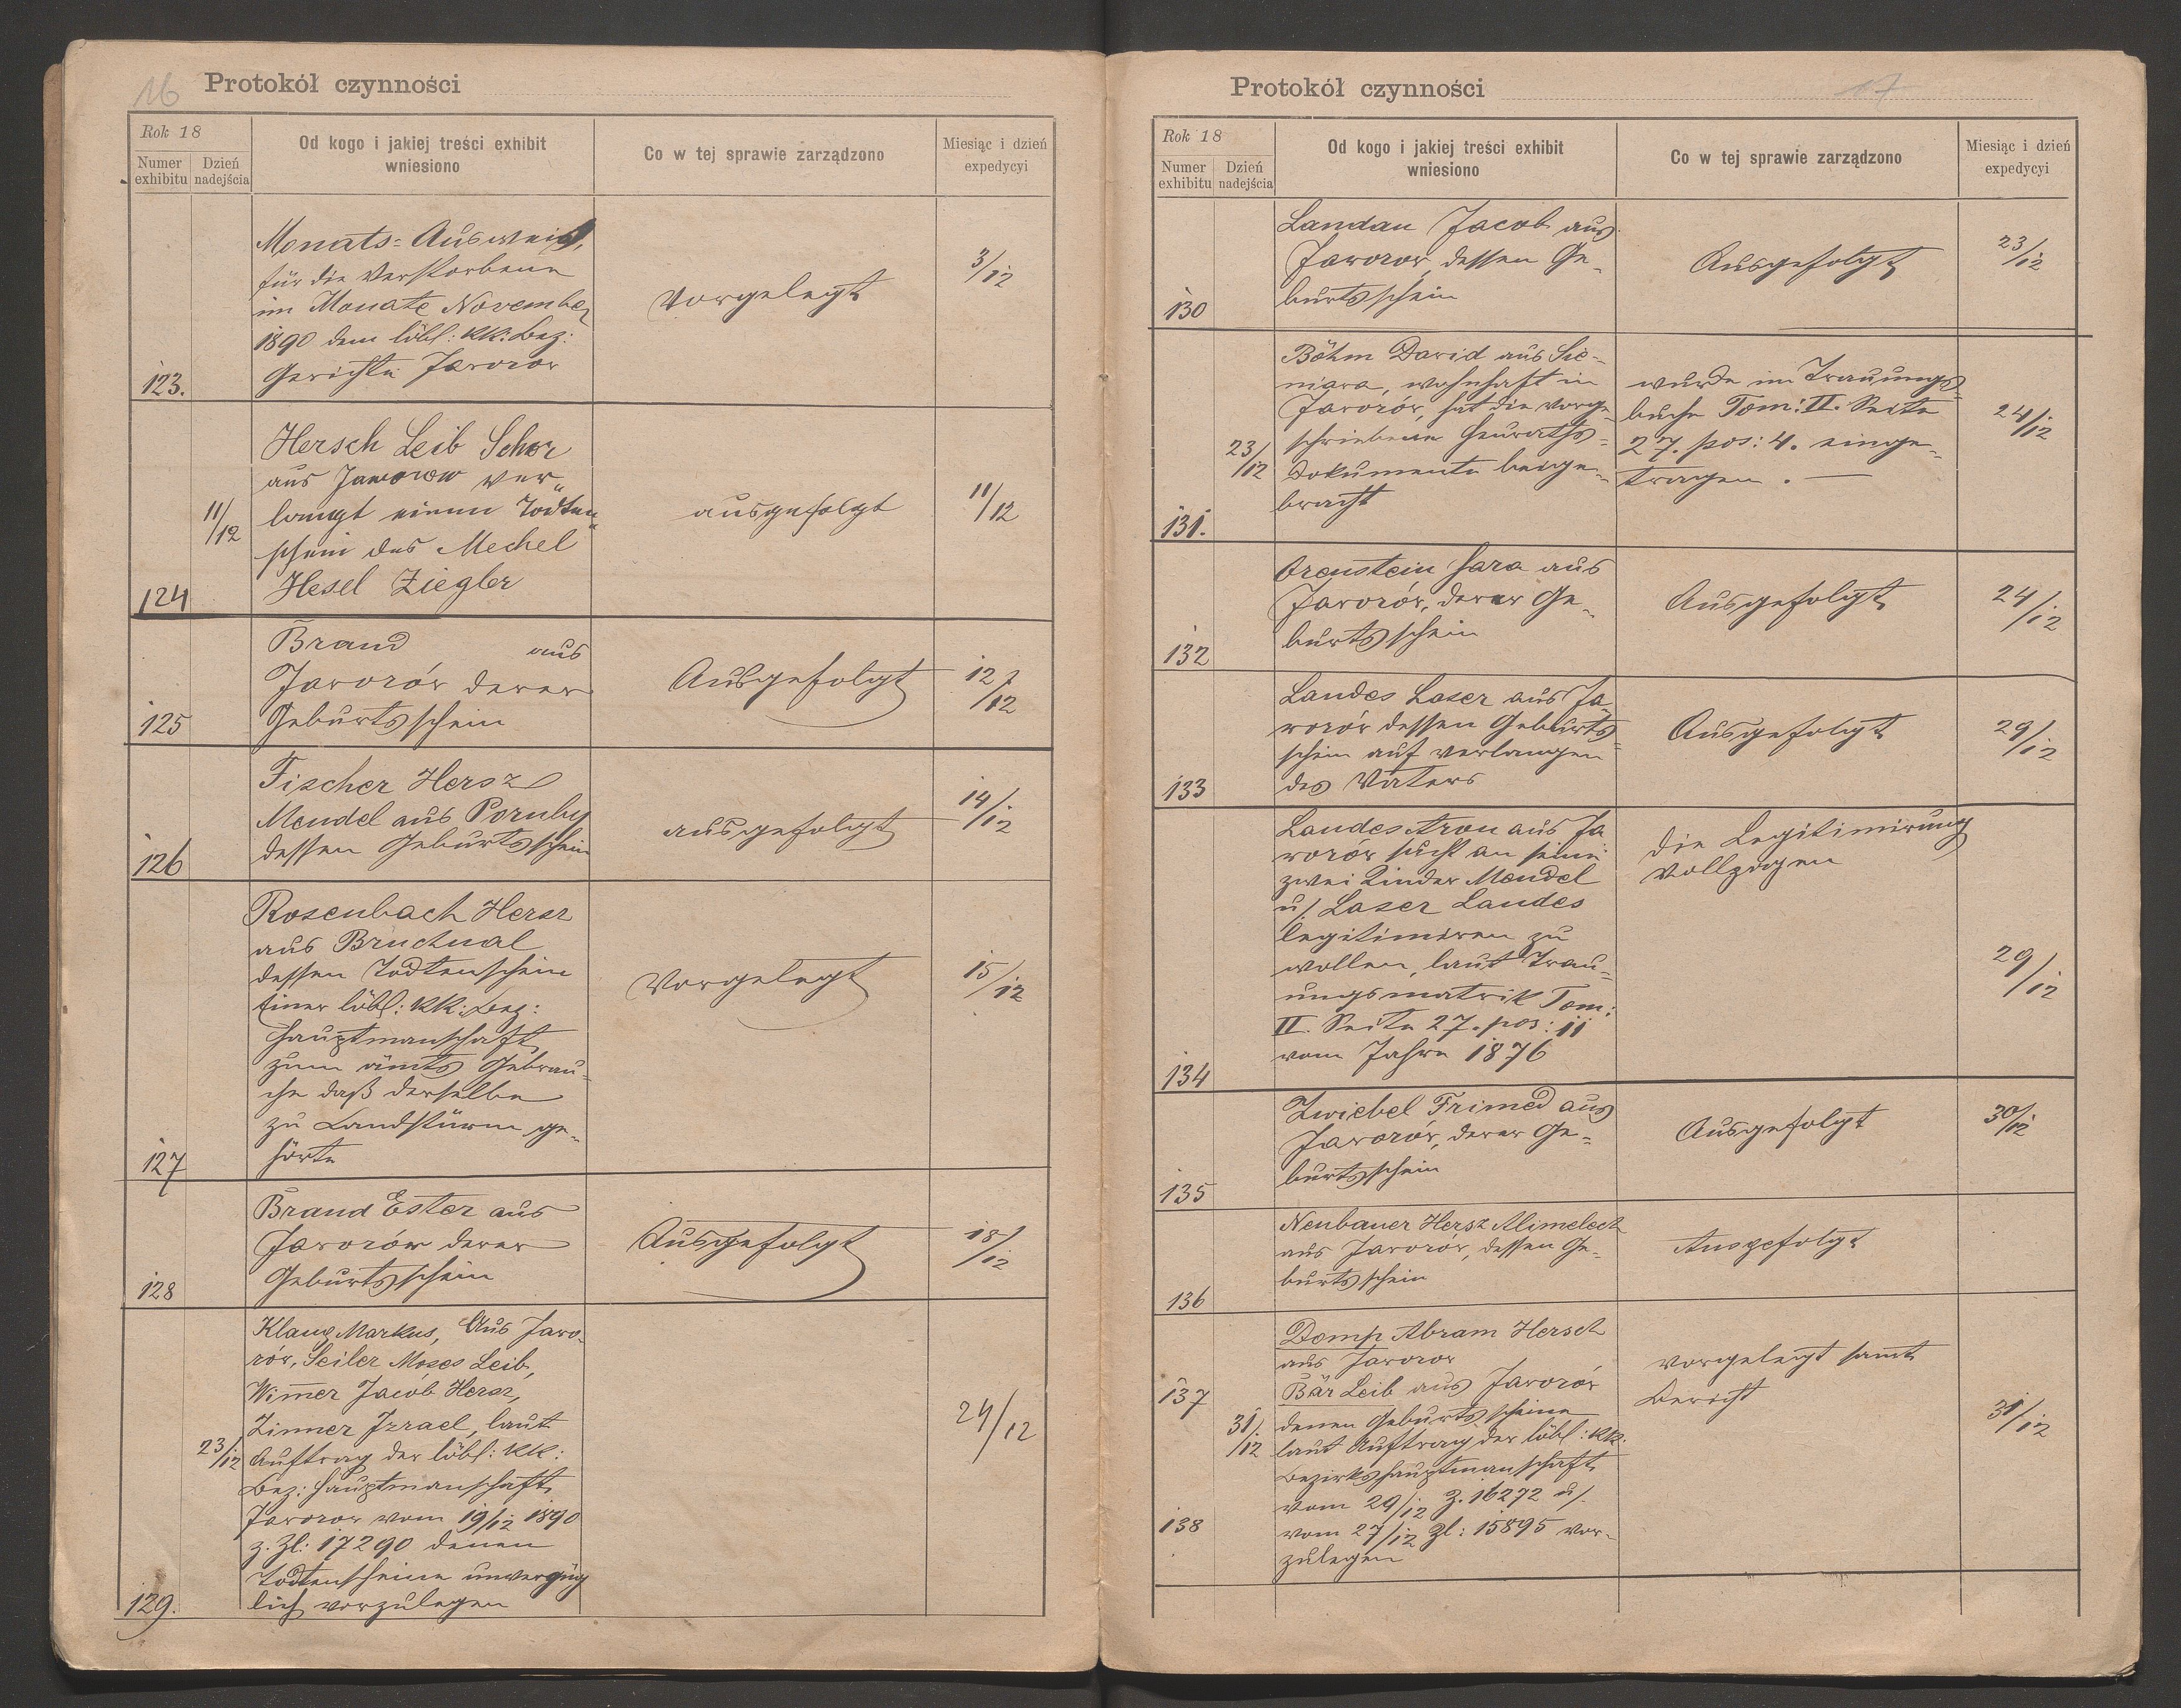 16
Protokół czynności
Rok 18
Numer exhibitu
Dzień nadejścia
Od kogo i jakiej treści exhibit wniesiono
Co w tej sprawie zarządzono
Miesiąc i dzień expedycyi
Monats= Ausweis,
für die Verstorbene
im Monate November
1890 dem löbl: KK: Bez:
Gerichte Javorow
123.
Vorgelegt
3/12
Hersch Leib Schor
aus Jaworow ver„
langt einen Todten„
schein des Mechel
Hesel Ziegler
124
11/12
ausgefolgt
11/12
Brand aus
Javorów derer
Geburtsschein
125
Ausgefolgt
12/12
Fischer Hersz
Mendel aus Poruby
dessen Geburtsschein
126
ausgefolgt
14/12
Rosenbach Hersz
aus Bruchnal
dessen Todtenschein
Einer löbl: KK: Bez:
Hauptmanschaft
zum ämts Gebrau=
che daß derselbe
zu Landstürm ge=
hörte
127
Vorgelegt
15/12
Brand Ester aus
Javorów derer
Geburtsschein
128
Ausgefolgt
18/12
Klang Markus, Aus Javo-
rów, Seiler Moses Leib,
Wimmer Jacob Hersz,
Zinner Izrael, laut
23/12
Auftrag der löbl: KK:
Bez: Hauptmanschaft
Javorow vom 19/12 1890
z. Zl: 17290 denen
Todtenscheine unverzüg
lich vorzulegen
129.
24/12
17
Protokół czynności
Rok 18
Numer exhibitu
Dzień nadejścia
Od kogo i jakiej treści exhibit wniesiono
Co w tej sprawie zarządzono
Miesiąc i dzień expedycyi
Landau Jacob aus
Javorow, dessen Ge=
burtsschein
130
Ausgefolgt
23/12
Böhm David aus Sie=
niava, wohnhaft in
Javorów, hat die vorge=
schriebene Heuraths=
Dokumente beige=
bracht
131.
23/12
wurde im Trauungs=
buche Tom: II. Seite
27. pos: 4. einge=
tragen. —
24/12
Orenstein Sara aus
Javorów, derer Ge=
burtsschein
132
Ausgefolgt
24/12
Landes Laser aus Ja
vorów dessen Geburts=
schein auf verlangen
des Vaters
133
Ausgefolgt
29/12
Landes Aron aus Ja
vorów sucht an seine
zwei Kinder Mendel
u/. Laser Landes
legitimiren zu
wollen, laut Trau=
ungsmatrik Tom:
II. Seite 27. pos: 11
vom Jahre 1876
134
die Legitimirung
Vollzogen
29/12
Zwiebel Frimed aus
Javorów, derer Ge=
burtsschein
135
Ausgefolgt
30/12
Neubauer Hersz Alimelech
aus Javorów, dessen Ge=
burtsschein
136
Ausgefolgt
Domp Abram Hersch
aus Javorow
137
Bär Leib aus Javorów
denen Geburtsscheine
31/12
laut Auftrag der löbl: KK.
Bezirkshauptmanschaft
vom 29/12 Z. 16272 u/.
138
vom 27/12 Zl: 15895 vor=
zulegen
vorgelegt samt
Bericht
31/12